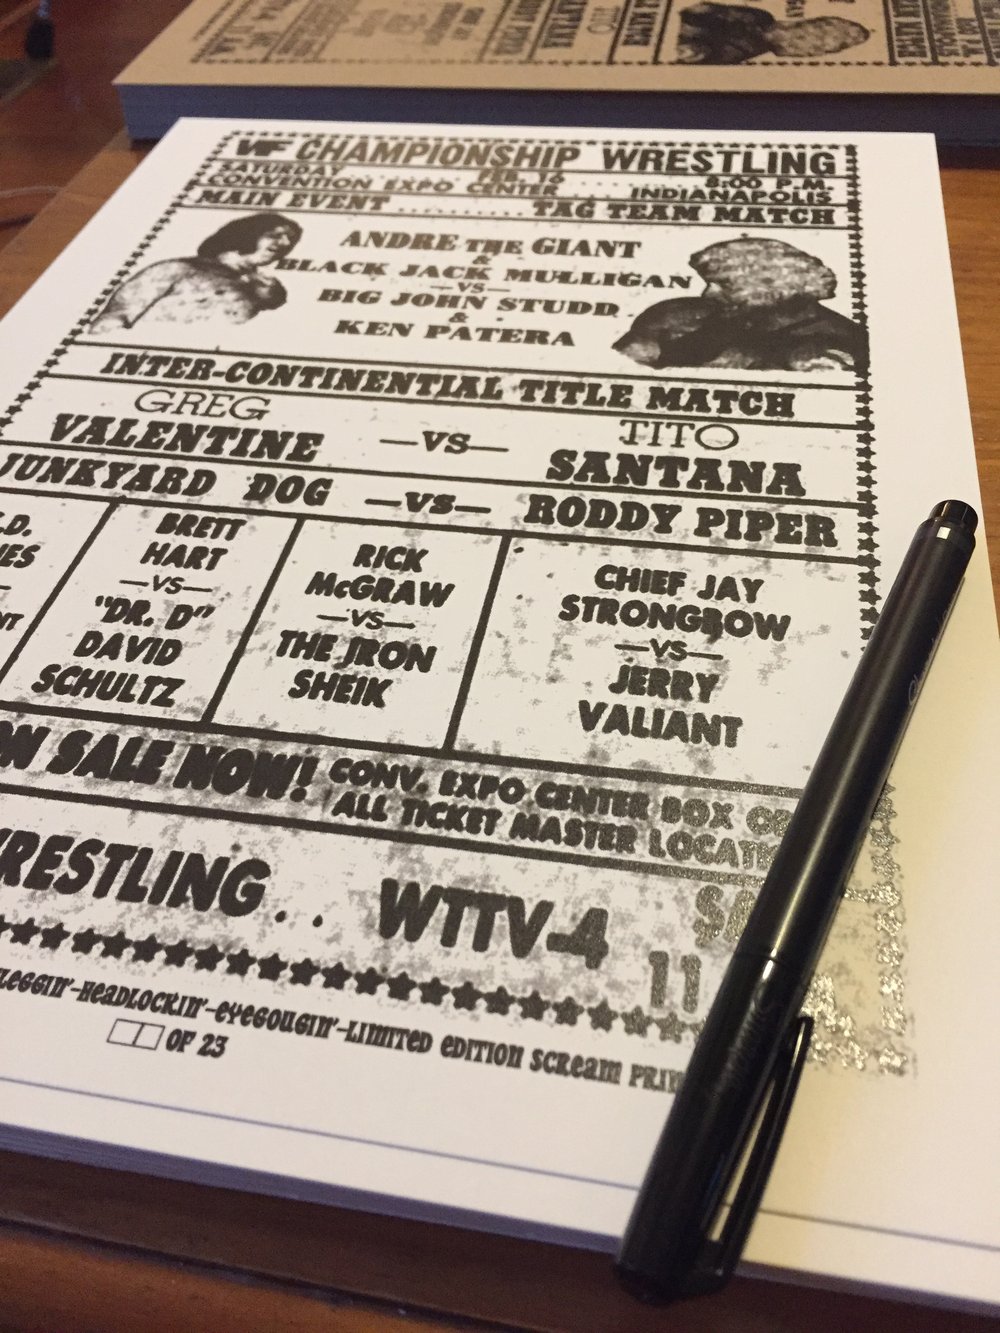 WF CHAMPIONSHIP WRESTLING
SATURDAY ........ FEB. 16 .... 8:00 P.M.
CONVENTION EXPO CENTER .......... INDIANAPOLIS
MAIN EVENT .......... TAG TEAM MATCH
ANDRE THE GIANT
&
BLACK JACK MULLIGAN
—VS—
BIG JOHN STUDD
&
KEN PATERA
INTER-CONTINENTIAL TITLE MATCH
GREG VALENTINE —VS— TITO SANTANA
JUNKYARD DOG —VS— RODDY PIPER
BRETT
HART
—VS—
"DR. D"
DAVID
SCHULTZ
RICK
McGRAW
—VS—
THE IRON
SHEIK
CHIEF JAY
STRONGBOW
—VS—
JERRY
VALIANT
ON SALE NOW! CONV. EXPO CENTER BOX
ALL TICKET MASTER
WRESTLING.. WTTV-4
11
HEADLOCKIN'-EYEGOUGIN'-LIMITED EDITION SCREAM
OF 23